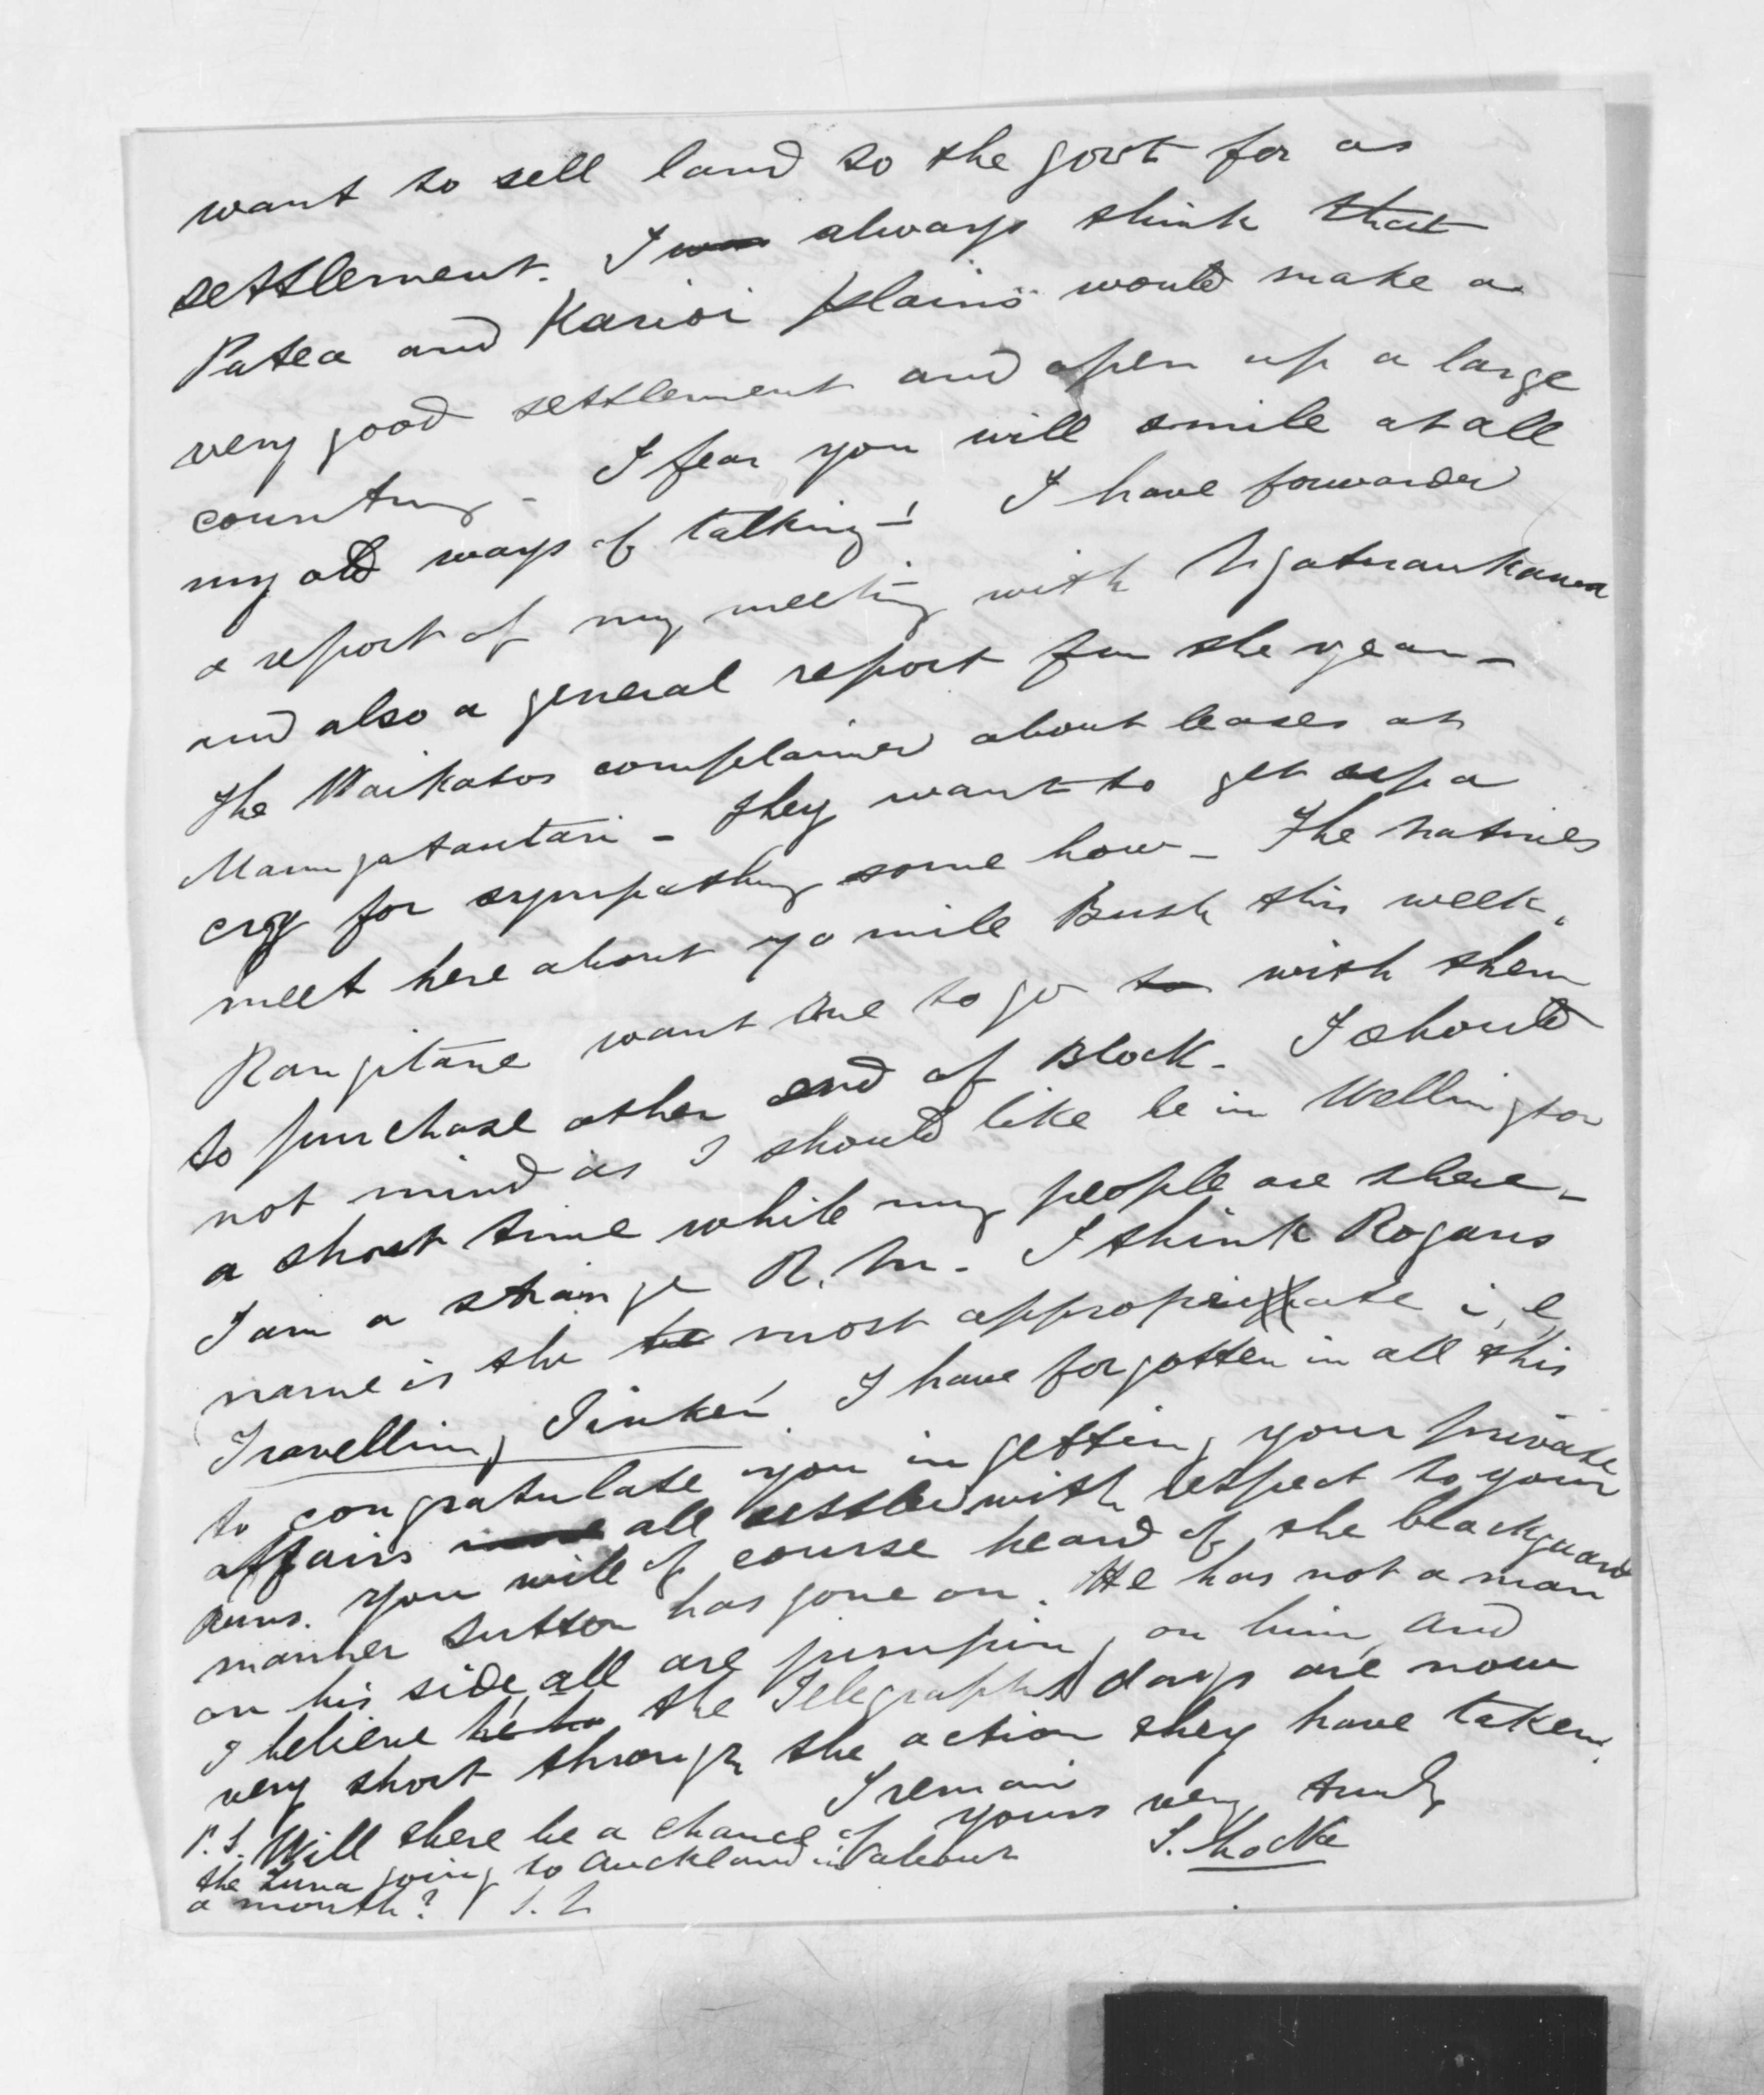 want to sell land to the govt for as
settlement. I always think that
Patea and Karioi plains would make a
very good settlement and open up a large
country - I fear you will smile at all
my old ways of talking -! I have forwarded
a report of my meeting with Ngatiraukawa
and also a general report for the year -
The Waikatos complained about leases at
Maungatautari - They want to get up a
cry for sympathy some how - The natives
meet here about 70 mile Bush this week.
Rangitane want me to go to with them
to purchase other end of Block - I should
not mind as I should like be in Wellington
a short time while my people are there -
I am a strange R. M. - I think Rogans
name is the most appropriate i,e,
Travelling Tinker. I have forgotten in all this
to congratulate you in getting your private
affairs all settled with respect to your
Runs. You will of course heard of the blackguard
manner Sutton has gone on. He has not a man
on his side all are jumping on him, and
I believe the Telegraphs days are now
very short through the action they have taken.
I remain
yours very truly
S. Locke
P.S. Will there be a chance of
the Luna going to Auckland in about
a month? S. L